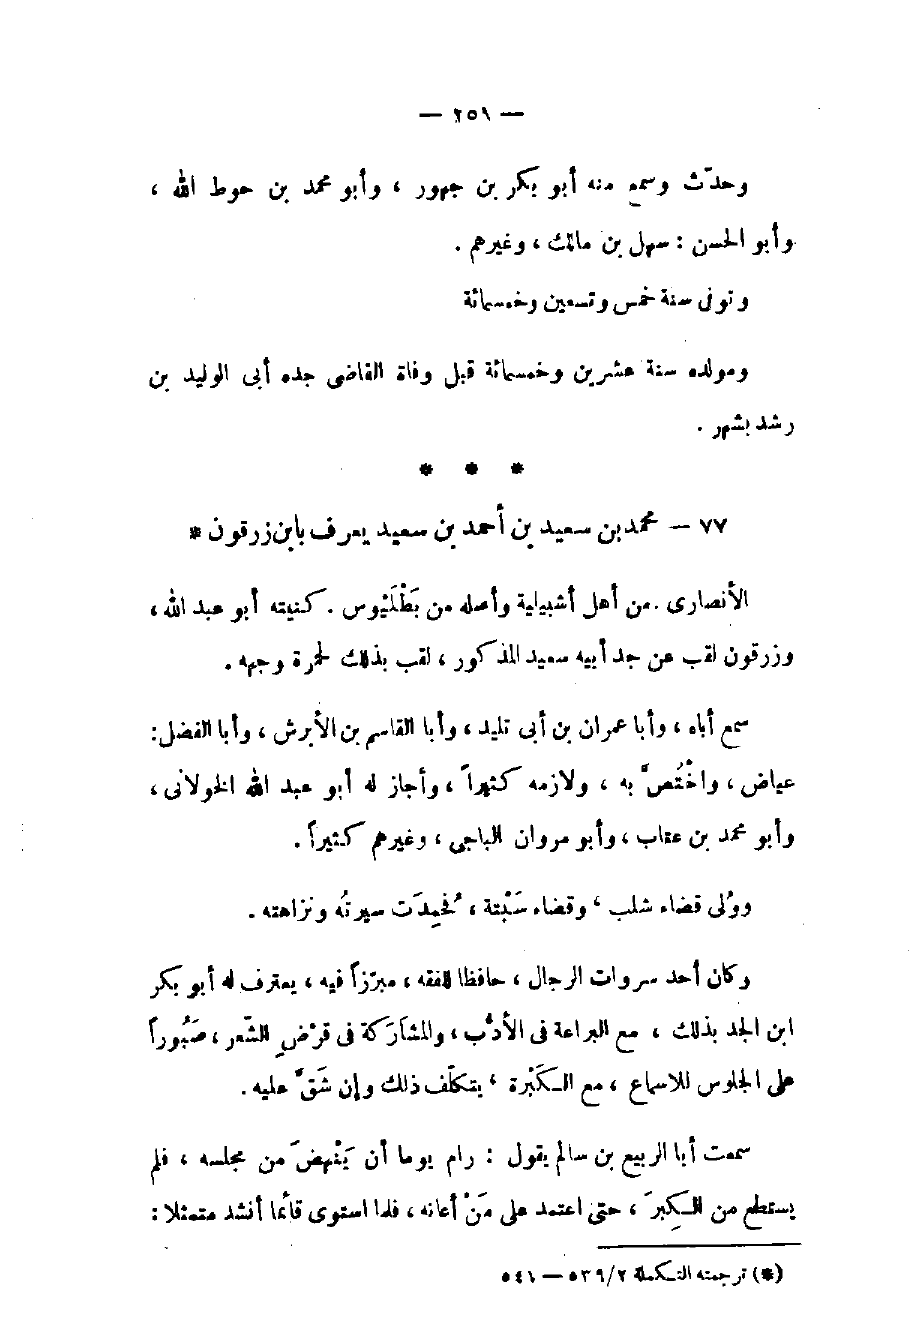 — ٢٥١ —
وحدّث وسمع منه أبو بكر بن جهور ، وأبو محمد بن حوط الله ،
وأبو الحسن : سهل بن مالك ، وغيرهم .
وتوفى سنة خمس وتسعين وخمسمائة
ومولده سنة عشرين وخمسمائة قبل وفاة القاضى جده أبى الوليد بن
رشد بشهر .
* * *
٧٧ — محمد بن سعيد بن أحمد بن سعيد يعرف بابن زرقون *
الأنصارى . من أهل أشبيلية وأصله من بَطْلَيْوس . كنيته أبو عبد الله ،
وزرقون لقب عن جد أبيه سعيد المذكور ، لقب بذلك لحمرة وجهه .
سمع أباه ، وأبا عمران بن أبى تليد ، وأبا القاسم بن الأبرش ، وأبا الفضل :
عياض ، واخْتُصَّ به ، ولازمه كثيراً ، وأجاز له أبو عبد الله الخولانى ،
وأبو محمد بن عتاب ، وأبو مروان الباجى ، وغيرهم كثيراً .
ووُلى قضاء شلب ، وقضاء سَبْتة ، فحُمِدَت سيرتُه ونزاهته .
وكان أحد سروات الرجال ، حافظا للفقه ، مبرّزاً فيه ، يعترف له أبو بكر
ابن الجد بذلك ، مع البراعة فى الأدب ، والمشاركة فى قرْضِ الشّعر ، صَبُوراً
على الجلوس للاسماع ، مع الكَبْرة ، يتكلّف ذلك وإن شَقَّ عليه .
سمعت أبا الربيع بن سالم يقول : رام يوما أن يَنْهضَ من مجلسه ، فلم
يستطع من الكِبَر ، حتى اعتمد على مَنْ أعانه ، فلما استوى قائما أنشد متمثلا :
(*) ترجمته التكملة ٢/٥٣٩ — ٥٤١